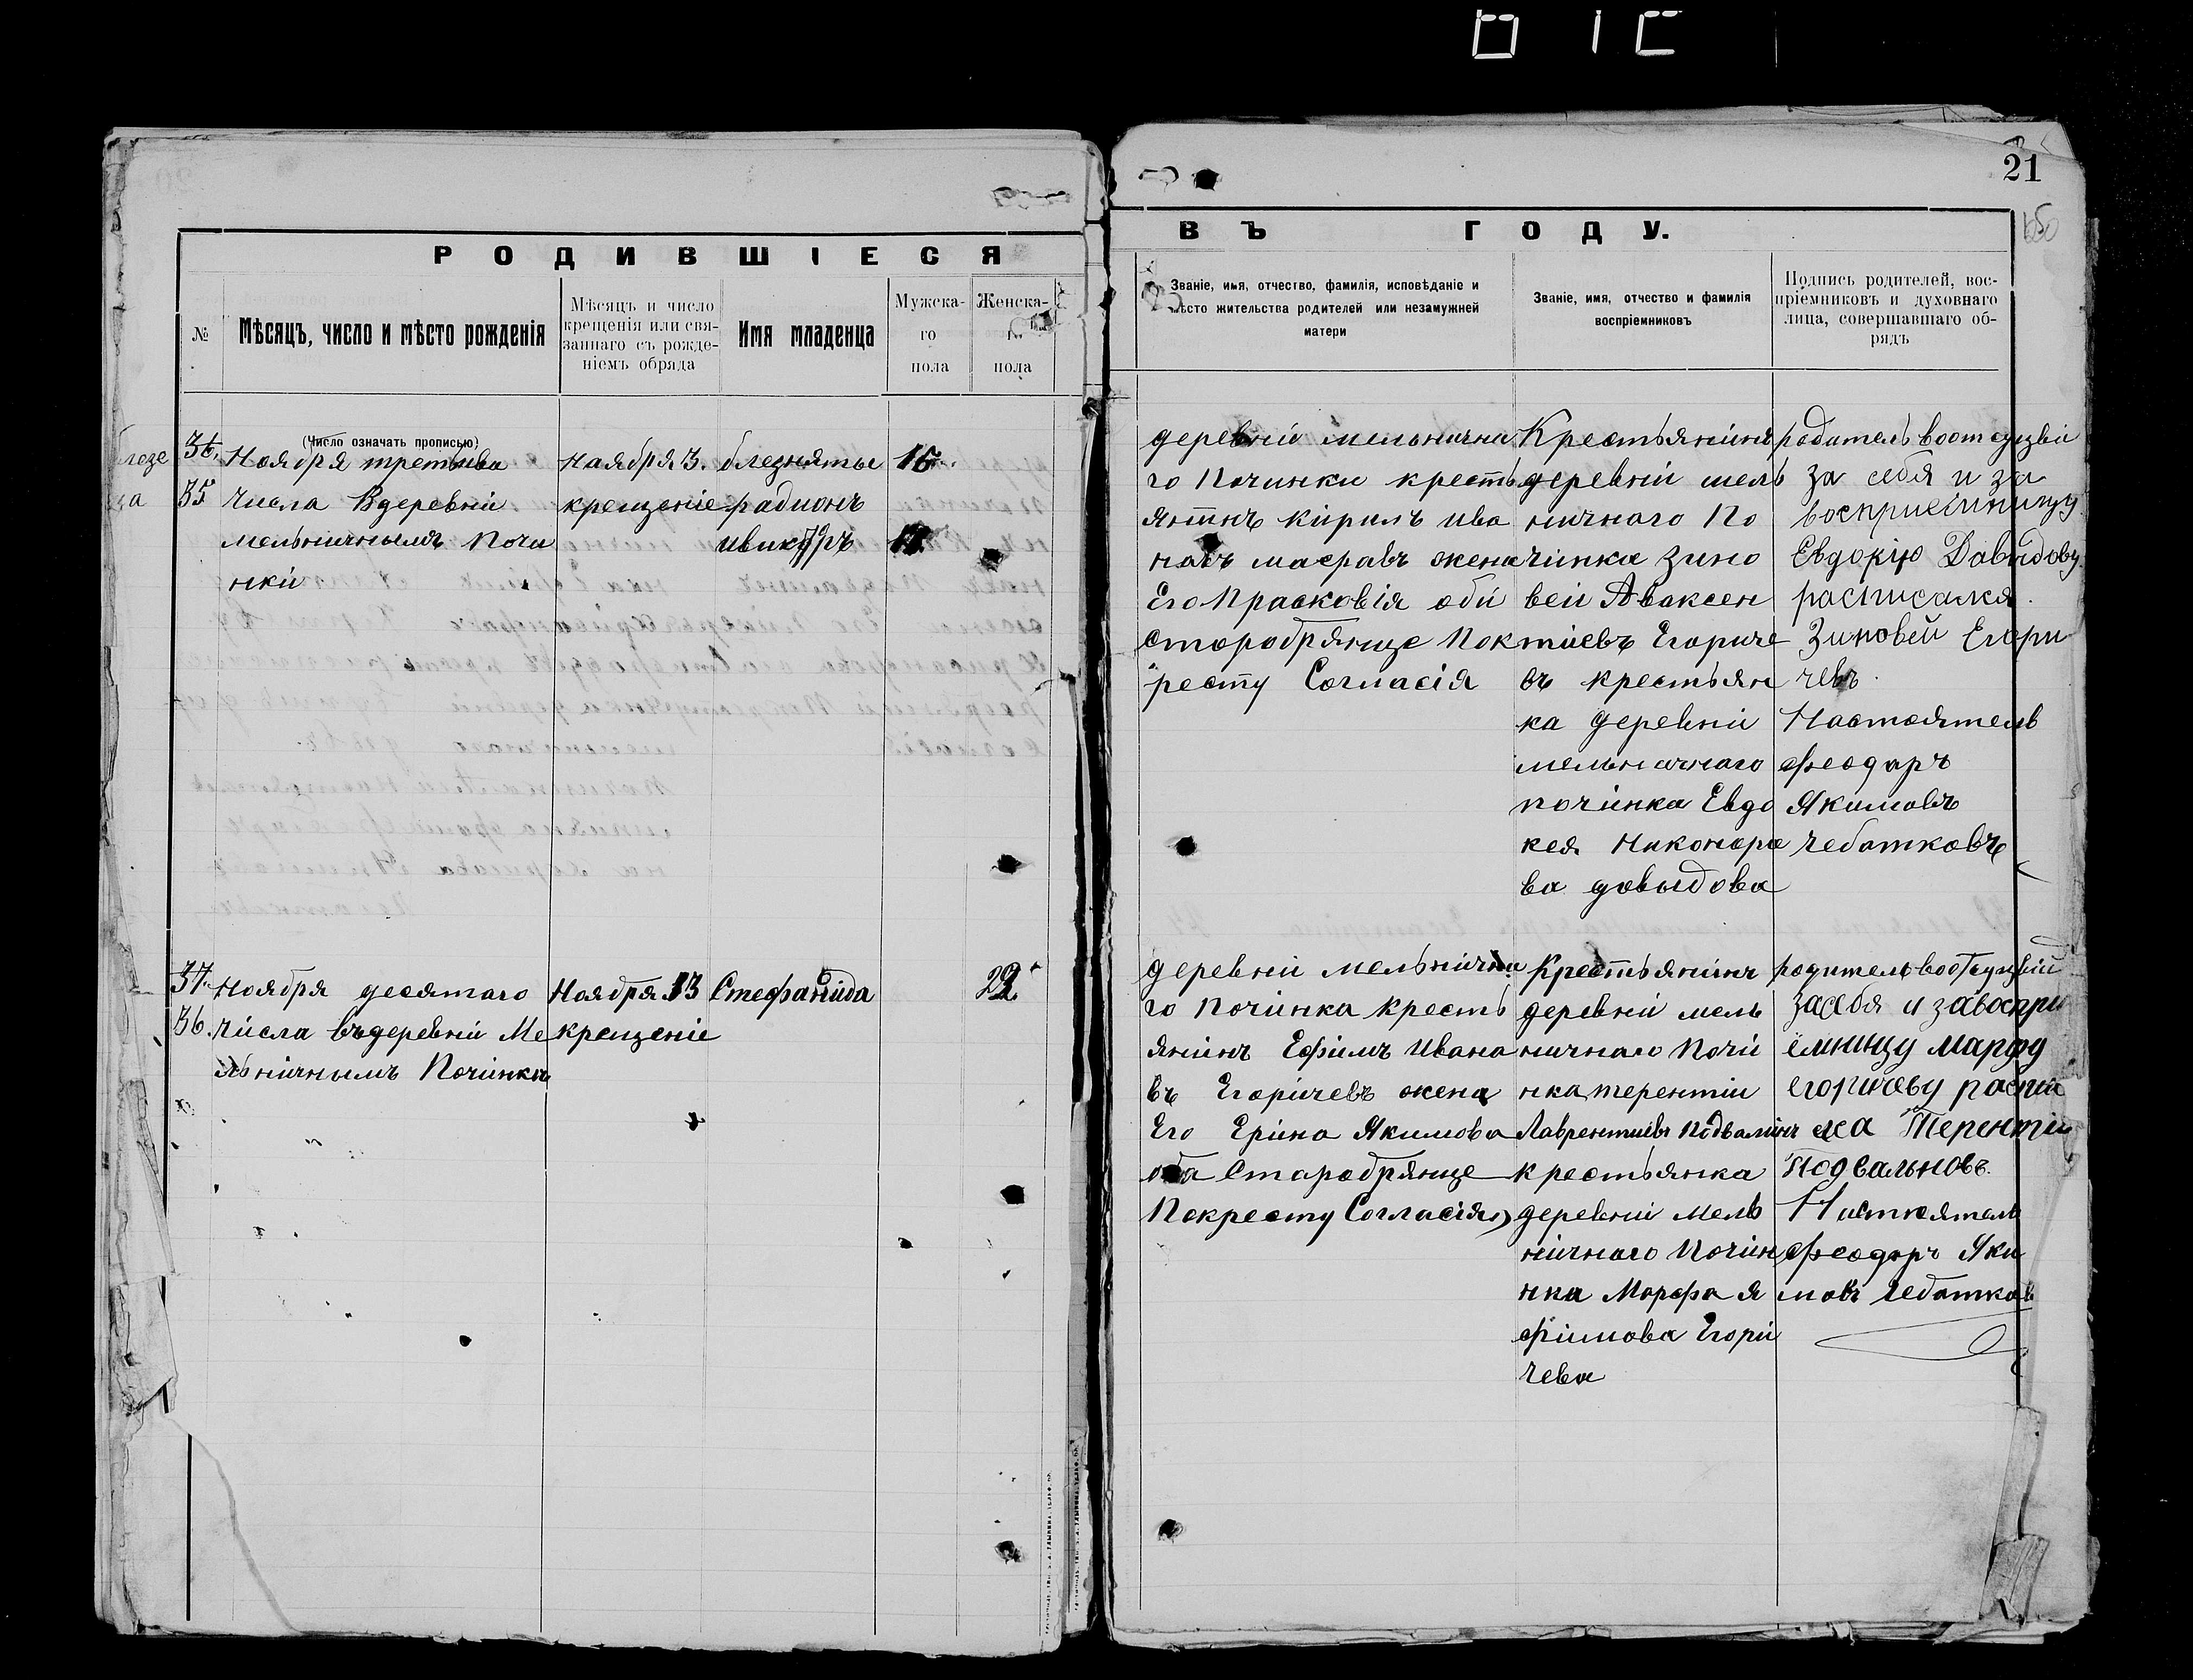 21
РОДИВШІЕСЯ
ВЪ ГОДУ.
№
Мѣсяцъ, число и мѣсто рожденія
Мѣсяцъ и число
крещенія или свя-
заннаго съ рожде-
ніемъ обряда
Имя младенца
Мужска-
го
пола
Женска-
пола
Званіе, имя, отчество, фамилія, исповѣданіе и
мѣсто жительства родителей или незамужней
матери
Званіе, имя, отчество и фамилія
воспріемниковъ
Подпись родителей, вос-
пріемниковъ и духовнаго
лица, совершавшаго об-
рядъ
(Число означать прописью)
36.
35
Ноября третьива
числа Вдеревніи
мельничнымъ Почи
нкіи
ноября 3.
крещеніе
близняты
радионъ
15
деревніи мельнична
го Починки кресть
янінъ кирилъ ива
жена
Его Прасковія оби
старобрянще Пок
ресту Согласія
Крестьянінъ
деревніи мель
ничнаго По
чінка Зино
веи Аваксен
тіевъ Егориче
въ крестьян
ка деревніи
мельничнаго
починка Евдо
кея Никоноро
ва довыдова
родитель
за себя и за
восприемницу
Евдокію Давыдову
расписался
Зиновеи Егори
чевъ
Настоятель
Феодоръ
Якимовъ
чеботковъ
37.
36.
Ноября десятаго
числа въдеревніи Ме
льничнымъ Починки
Ноября 13
крещеніе
Стефанида
22
деревніи мельнична
го починка кресть
янінъ Ефімъ Ивано
въ Егорічевъ жена
Его Еріна Якимова
оба Старобрянще
Покресту Согласія
Крестьянінъ
деревніи мель
ничнаго почи
нка терентіи
Лаврентіевъ Подвалінъ
крестьянка
деревніи мель
нічнаго почин
нка Марфа я
фимова Егорі
чева
родитель
засебя и завоспри
ёмницу марфу
егоричеву распи
ся Терентіи
Подвальновъ.
Настоятель
Феодоръ Яки
мовъ чеботков